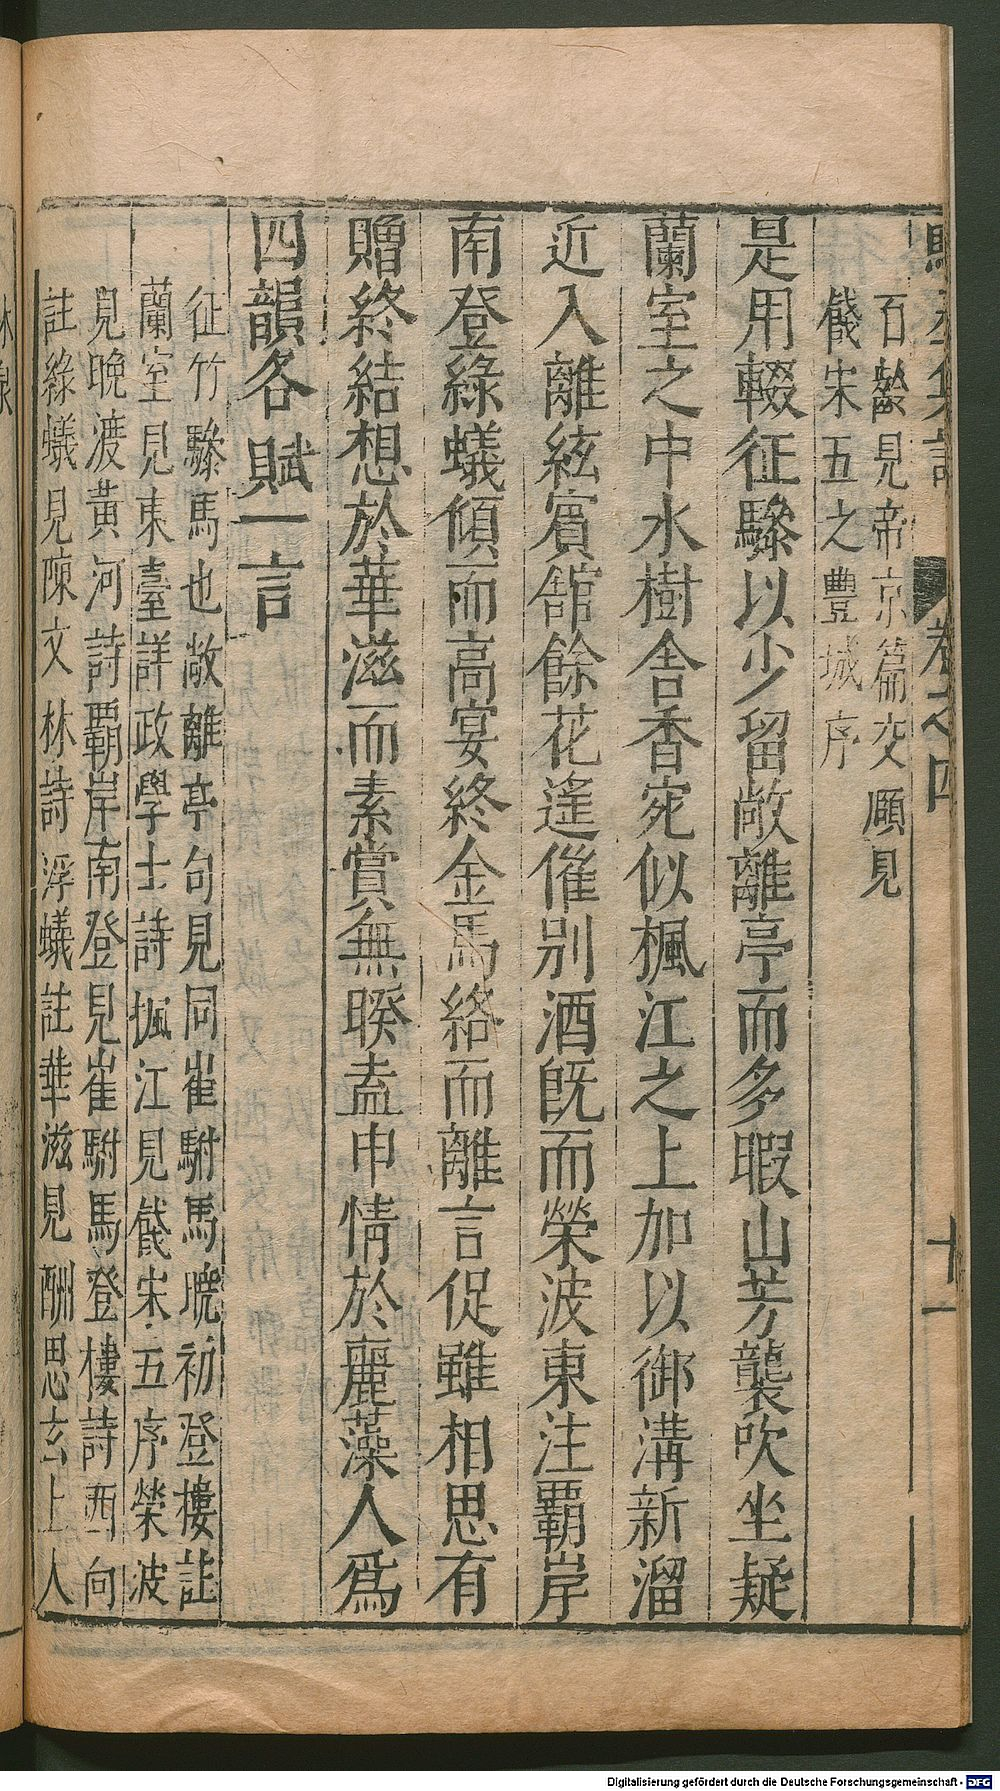 石齡見帝京篇交願見
餞宋五之豐城序
是用輟征驂以少留敞離亭而多暇山芳襲吹坐疑
蘭室之中水樹含香宛似楓江之上加以御溝新溜
近入離絃賓館餘花遙催別酒既而榮波東注霸岸
南登綠蟻傾而高宴終金馬絡而離言促雖相思有
贈終結想於華滋而素賞無暌盍申情於麗藻人為
四韻各賦一言
征竹驂馬也敞離亭句見同崔駙馬曉初登樓註
蘭室見東臺詳政學士詩楓江見餞宋五序榮波
見晚渡黃河詩霸岸南登見崔駙馬登樓詩西向
註綠蟻見陳文林詩浮蟻註華滋見酬思玄上人
卷之四
十一
Digitalisierung gefördert durch die Deutsche Forschungsgemeinschaft - DFG